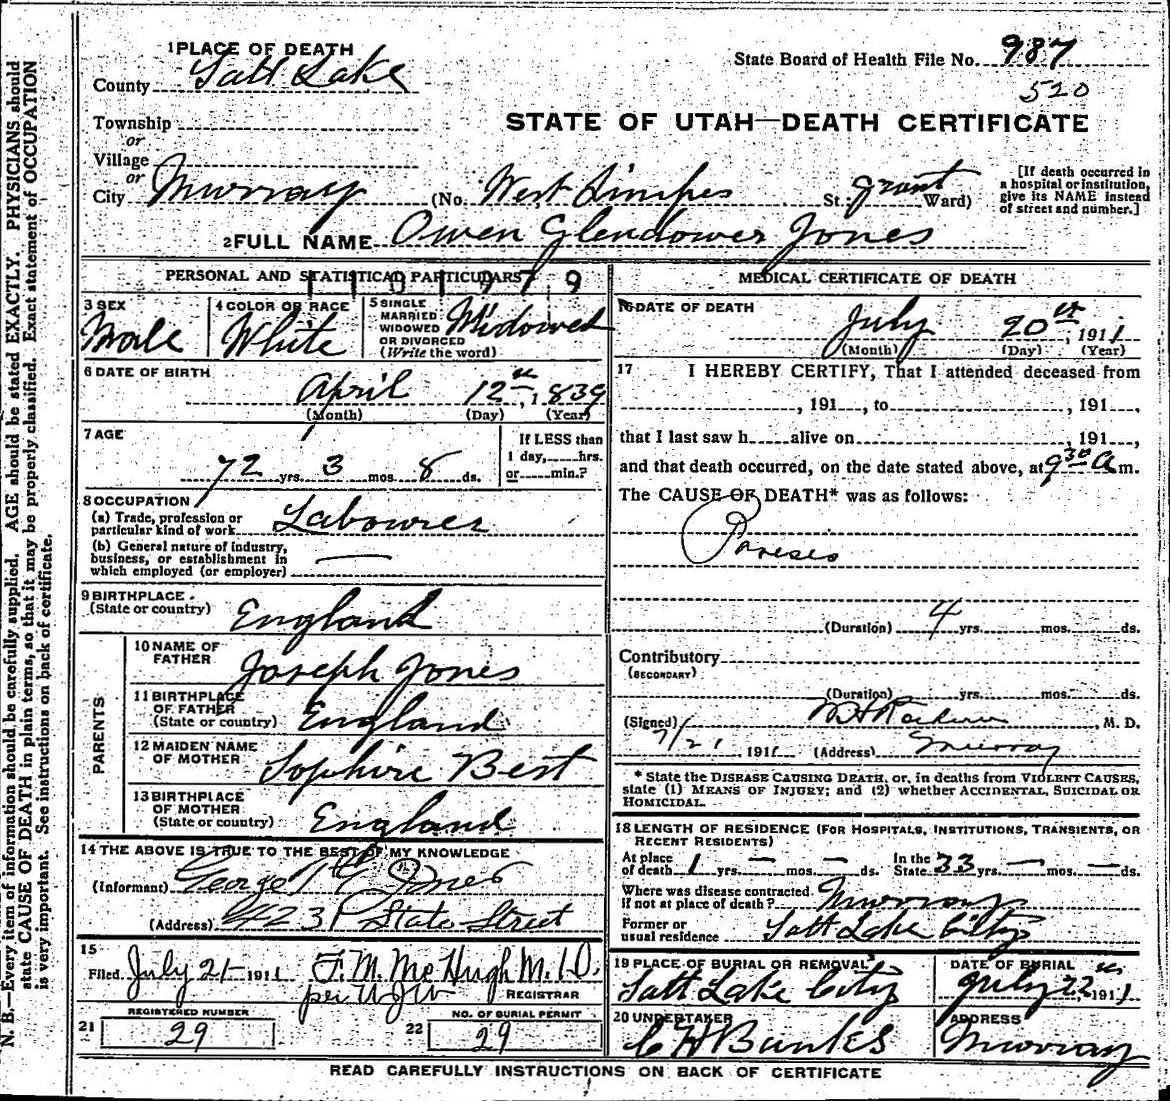 1 PLACE OF DEATH
County Salt Lake
State Board of Health File No. 987
520
Township
or
Village
or
STATE OF UTAH—DEATH CERTIFICATE
City Murray (No. West St. Grant Ward)
[If death occurred in a hospital or institution, give its NAME instead of street and number.]
2 FULL NAME Owen Glendower Jones
PERSONAL AND STATISTICAL PARTICULARS
3 SEX Male
4 COLOR OR RACE White
5 SINGLE MARRIED WIDOWED OR DIVORCED (Write the word) Widowed
6 DATE OF BIRTH
April 12th, 1839
(Month) (Day) (Year)
7 AGE
72 yrs. 3 mos. 8 ds.
If LESS than 1 day, hrs. or min.?
8 OCCUPATION
(a) Trade, profession or particular kind of work Labourer
(b) General nature of industry, business, or establishment in which employed (or employer) —
9 BIRTHPLACE
(State or country) England
PARENTS
10 NAME OF FATHER Joseph Jones
11 BIRTHPLACE OF FATHER (State or country) England
12 MAIDEN NAME OF MOTHER Sophire Best
13 BIRTHPLACE OF MOTHER (State or country) England
14 THE ABOVE IS TRUE TO THE BEST OF MY KNOWLEDGE
(Informant) George Jones
(Address) State Street
15
Filed July 21 1911 F. M. McHugh M.D.
per WJW REGISTRAR
REGISTERED NUMBER
21 29
NO. OF BURIAL PERMIT
22 29
MEDICAL CERTIFICATE OF DEATH
16 DATE OF DEATH
July 20th, 1911
(Month) (Day) (Year)
17 I HEREBY CERTIFY, That I attended deceased from
, 191 , to , 191 ,
that I last saw h alive on , 191 ,
and that death occurred, on the date stated above, at 9 30 A m.
The CAUSE OF DEATH* was as follows:
Pareses
(Duration) 4 yrs. mos. ds.
Contributory
(SECONDARY)
(Duration) yrs. mos. ds.
(Signed) M. D.
7/21 1911 (Address) Murray
* State the DISEASE CAUSING DEATH, or, in deaths from VIOLENT CAUSES, state (1) MEANS OF INJURY; and (2) whether ACCIDENTAL, SUICIDAL OR HOMICIDAL.
18 LENGTH OF RESIDENCE (FOR HOSPITALS, INSTITUTIONS, TRANSIENTS, OR RECENT RESIDENTS)
At place of death 1 yrs. — mos. — ds. In the State 33 yrs. — mos. — ds.
Where was disease contracted if not at place of death? Murray
Former or usual residence Salt Lake City
19 PLACE OF BURIAL OR REMOVAL Salt Lake City
DATE OF BURIAL July 22 1911
20 UNDERTAKER Banks
ADDRESS Murray
READ CAREFULLY INSTRUCTIONS ON BACK OF CERTIFICATE
N. B.—Every item of information should be carefully supplied. AGE should be stated EXACTLY. PHYSICIANS should
state CAUSE OF DEATH in plain terms, so that it may be properly classified. Exact statement of OCCUPATION
is very important. See instructions on back of certificate.